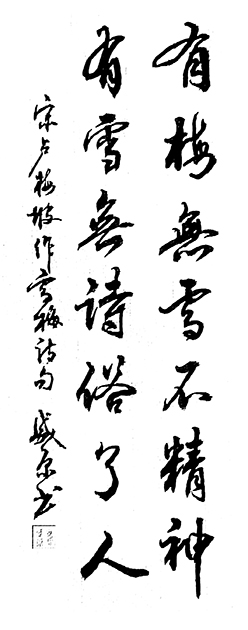 有梅無雪不精神
有雪無詩俗了人
宋卢梅坡作雪梅詩句 盛原书